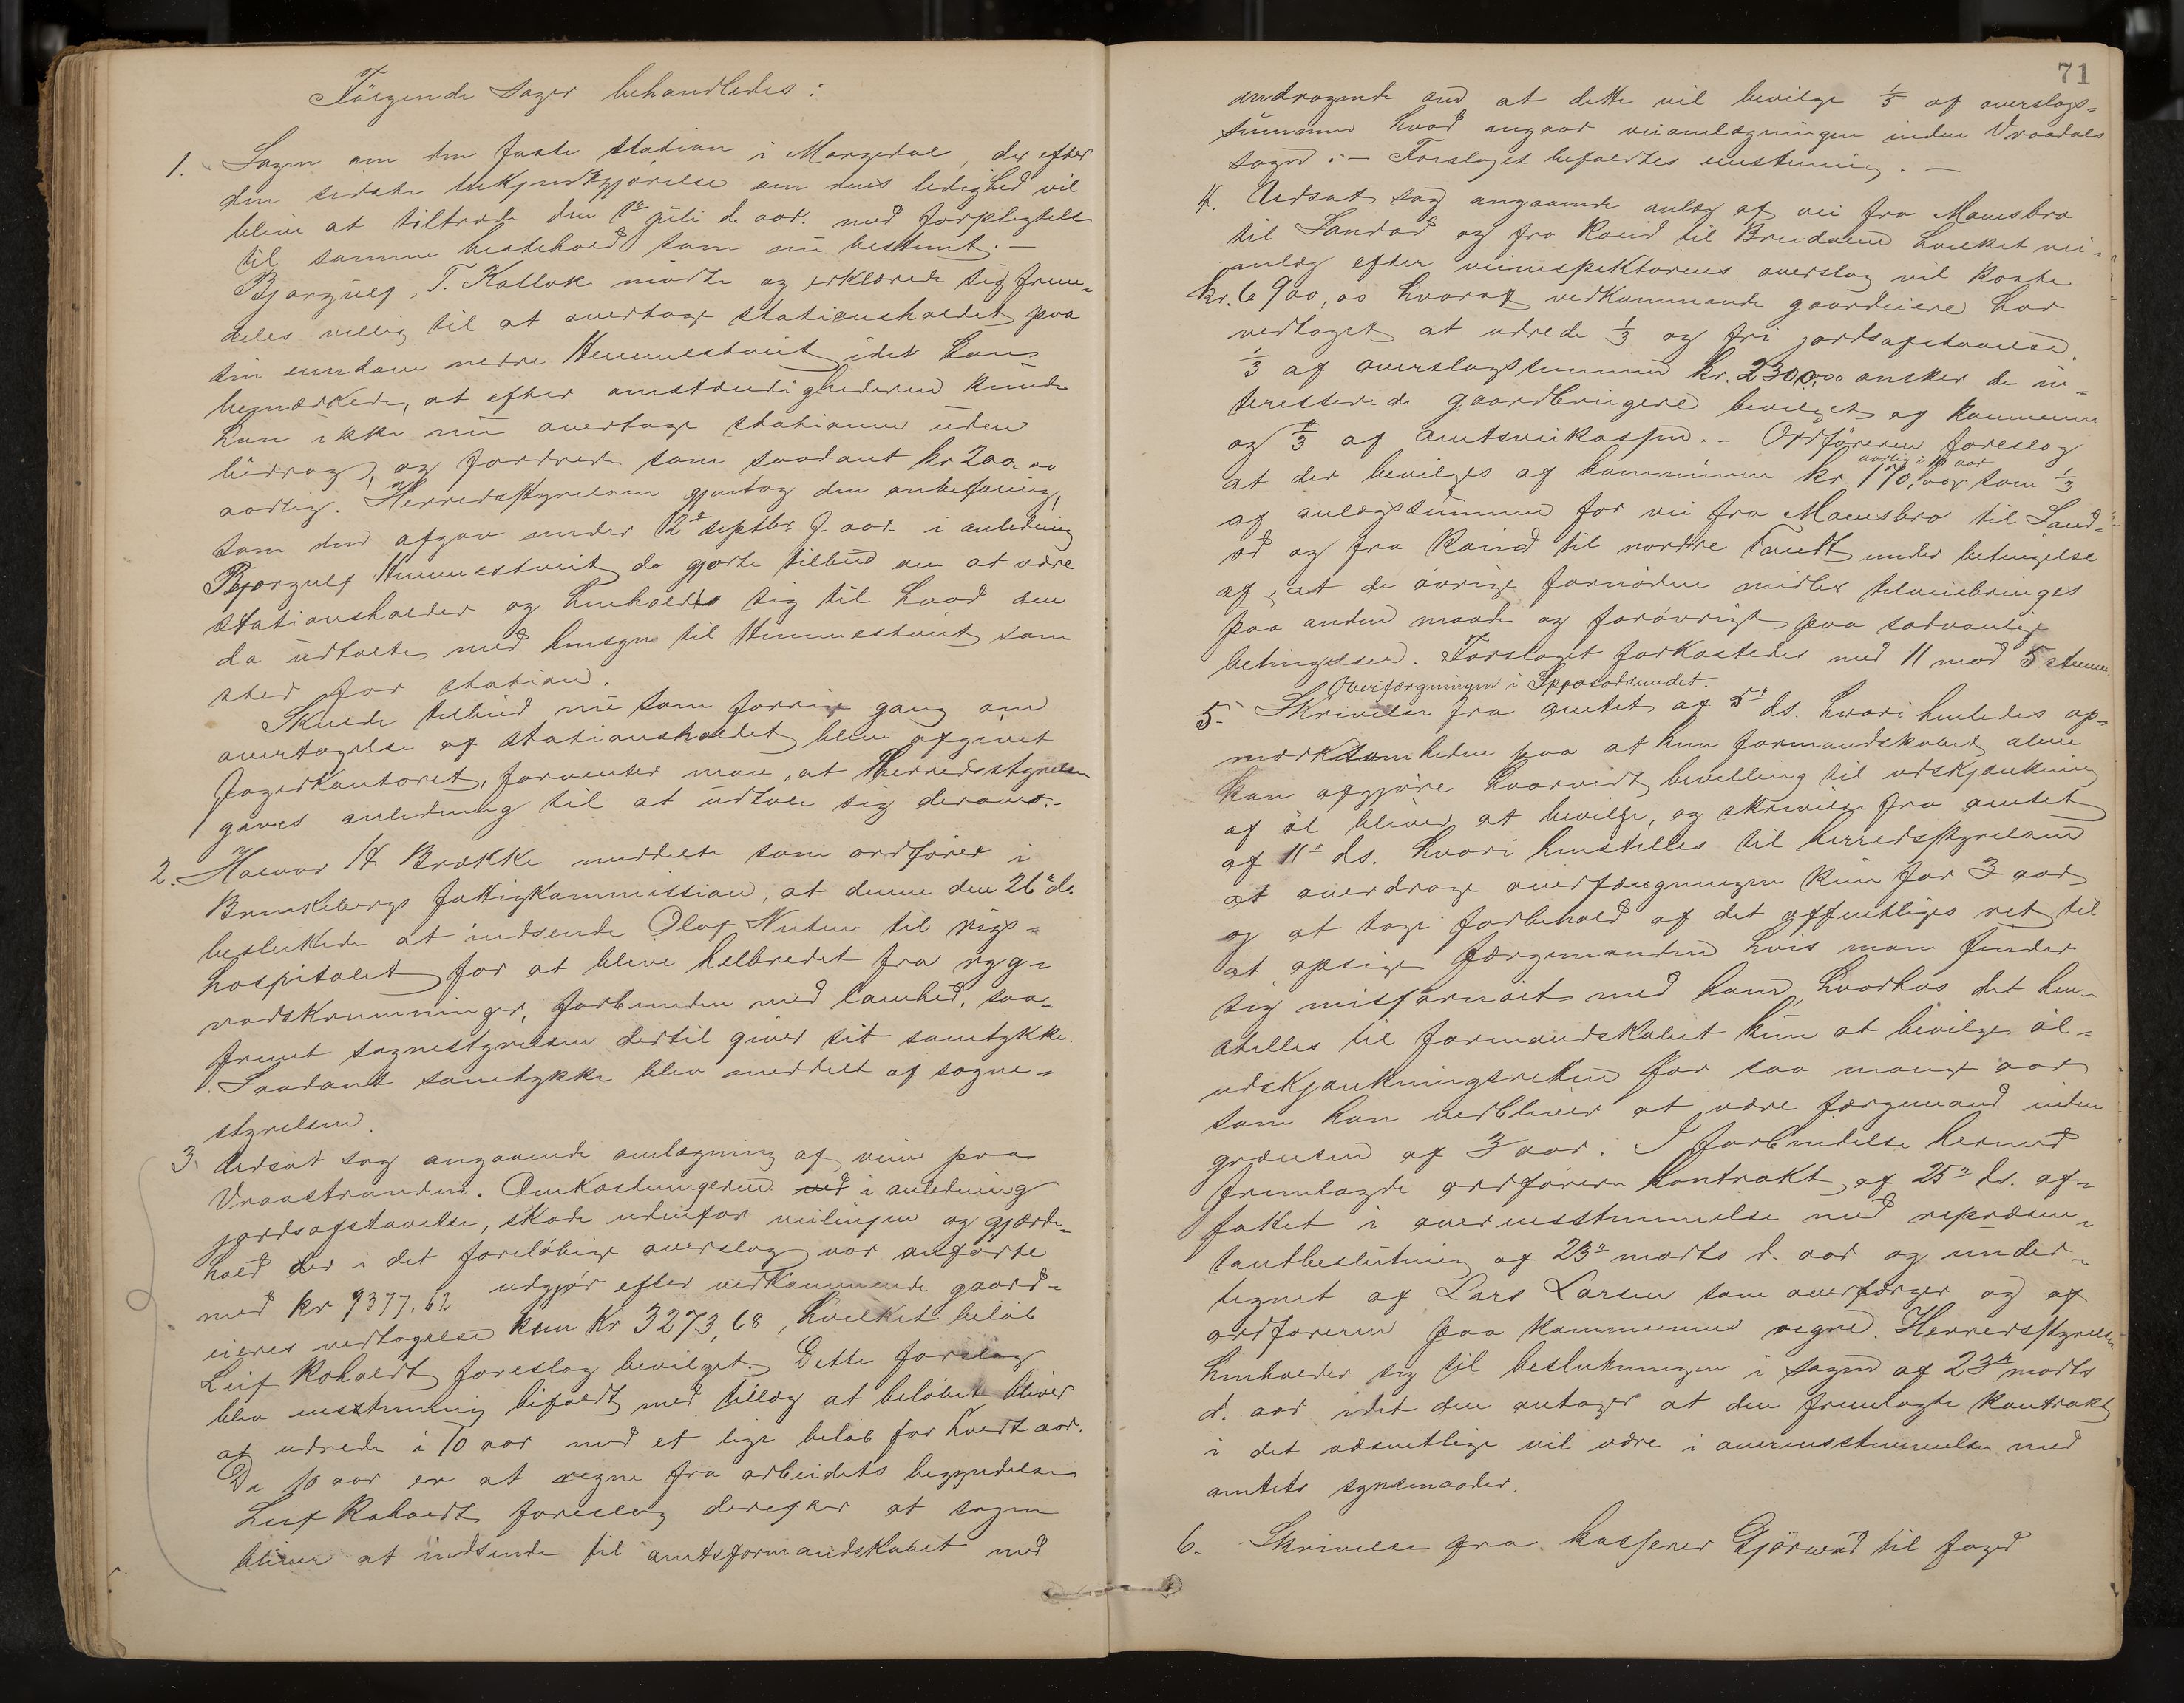 Følgende sager behandledes:
1. Sagen om den faste station i Morgedal, der efter
den sidste bekjendtgjørelse om dens ledighed vil
blive at tiltræde den 1ste juli d. aar. med forpligtelse
til samme hestehold som nu bestemt. —
Bjørgulf T. Kallok mødte og erklærede sig frem-
deles villig til at overtage stationsholdet paa
sin eiendom nedre Hemmestveit idet han
bemærkede, at efter omstændighederne kunde
han ikke nu overtage stationen uden
bidrag, og fordrede som saadant kr 200.00
aarlig. Herredsstyrelsen gjentog den anbefaling,
som den afgav under 12te septbr. f. aar. i anledning
Bjørgulf Hemmestveit da gjorte tilbud om at være
stationsholder og henholdte sig til hvad den
da udtalte med hensyn til Hemmestveit som
sted for station.
Skulde tilbud nu som forrige gang om
overtagelse af stationsholdet blive afgivet
fogedkontoret, forventer man, at Herredsstyrelsen
gives anledning til at udtale sig derover.-
2. Halvor H Brække meddelte som ordfører i
Brunkebergs fattigkommission, at denne den 26de ds.
besluttede at indsende Olaf Nuten til rigs-
hospitalet for at blive helbredet fra ryg-
radskrumninger, forbunden med lamhed, saa-
fremt sognestyrelsen dertil giver sit samtykke.
Saadant samtykke blev meddelt af sogne-
styrelsen.
3. Udsat sag angaaende omlægning af veien paa
Vraastranden. Omkostningerne ved i anledning
jordsafstaaelse, skade udenfor veilinjen og gjærde-
hold der i det foreløbige overslag var anførte
med kr 9377.62 udgjør efter vedkommende gaard-
eieres vedtagelse kun kr 3273,68, hvilket beløb
Leif Roholdt foreslog bevilget. Dette forslag
blev enstemmig bifaldt med tillæg at beløbet bliver
at udrede i 10 aar med et lige beløb for hvert aar.
De 10 aar er at regne fra arbeidets begyndelse
Leif Roholdt foreslog derefter at sagen
bliver at indsende til amtsformandskabet med
71
andragende om at dette vil bevilge 1/5 af overslags-
summen hvad angaar veiomlægningen inden Vraadals
sogn. — Forslaget bifaldtes enstemmig. —
4. Udsat sag angaaende anlæg af vei fra Moensbro
til Sandød og fra Kaind til Breidalen hvilket vei-
anlæg efter veiinspektørens overslag vil koste
kr. 6900,00 hvoraf vedkommende gaardeiere har
vedtaget at udrede 1/3 og fri jordsafstaaelse.
1/3 af overslagssummen kr. 2300,00 ønsker de in-
teresserede gaardbrugere bevilget af kommunen
og 1/3 af amtsveikassen. - Ordføreren foreslog
at der bevilges af kommunen kr. 170,00 aarlig i 10 aar som 1/3
af anlægssummen for vei fra Moensbro til Sand-
ød og fra Kaind til nordre under betingelse
af, at de øvrige fornødne midler tilveiebringes
paa anden maade og forøvrigt paa sædvanlige
betingelser. Forslaget forkastedes med 11 mod 5 stemmer.
Overfærgningen i Spjosodsundet.
5. Skrivelse fra amtet af 5te ds. hvori henledes op-
mærksomheden paa at kun formandskabet alene
kan afgjøre hvorvidt bevilling til udskjænkning
af øl bliver at bevilge, og skrivelse fra amtet
af 11te ds. hvori henstilles til herredsstyrelsen
at overdrage overfærgningen kun for 3 aar
og at tage forbehold af det offentliges ret til
at opsige færgemanden hvis man finder
sig misfornøiet med ham, hvorhos det hen-
stilles til formandskabet kun at bevilge øl-
udskjænkningsretten for saa mange aar
som han vedbliver at være færgemand inden
grænsen af 3 aar. I forbindelse hermed
fremlagde ordføreren kontrakt af 25de ds. af-
fattet i overensstemmelse med repræsen-
tantbeslutning af 23de marts d. aar og under-
tegnet af Lars Larsen som overfærger og af
ordføreren paa kommunens vegne. Herredsstyrelsen
henholder sig til beslutningen i sagen af 23de marts
d. aar idet den antager at den fremlagte kontrakt
i det væsentlige vil være i overensstemmelse med
amtets synsmaader.
6. Skrivelse fra kasserer Gjørvend til foged